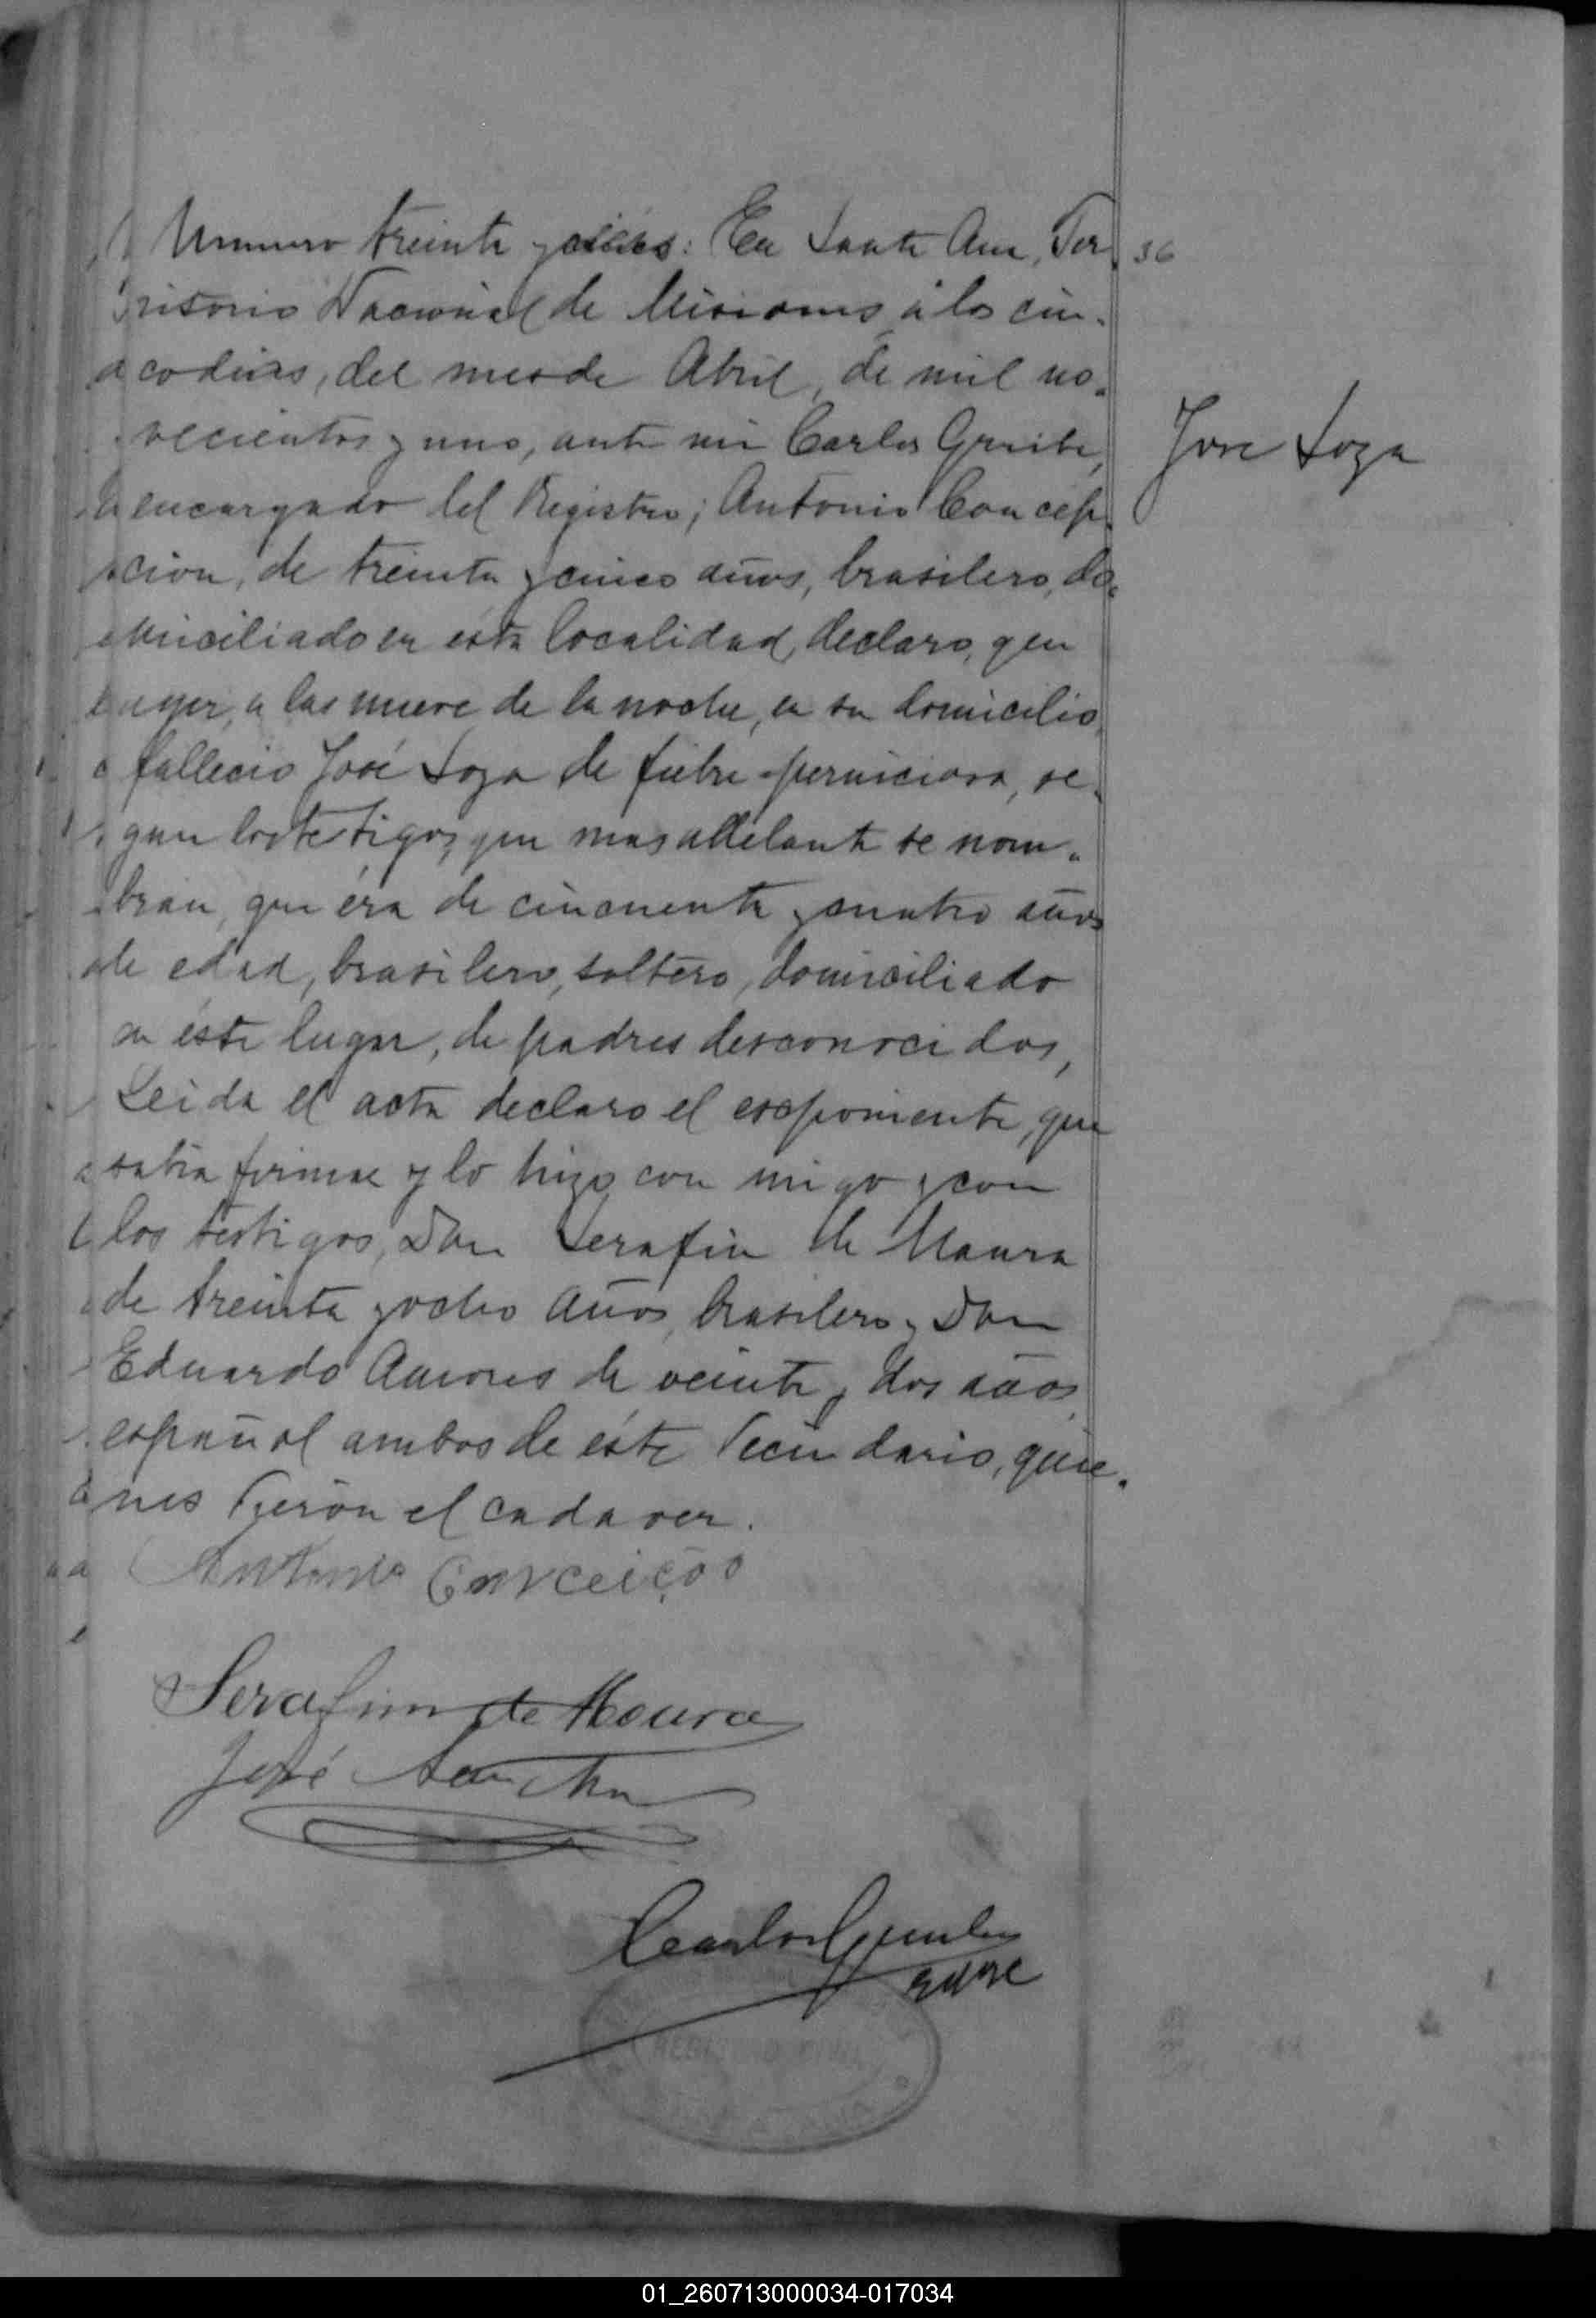 Numero treinta y seis: En Santa Ana, Ter
36
ritorio Nacional de Misiones á los cin-
co dias, del mes de Abril, de mil no-
vecientos y uno, ante mi Carlos
Jose Soza
encargado del Registro; Antonio Concep
cion, de treinta y cinco años, brasilero, do-
miciliado en ésta localidad, declaro, que
ayer, a las nueve de la noche, en su domicilio,
fallecio José Soza de fiebre perniciosa, se-
gun los testigos, que mas adelante se nom-
bran, que éra de cincuenta y cuatro años
de edad, brasilero, soltero, domiciliado
en éste lugar, de padres desconocidos,
Leida el acta declaro el esponente, que
sabia firmar y lo hizo con migo y con
los testigos, Don Serafin de Maura
de treinta y ocho años, brasilero y Don
Eduardo de veinte y dos años
español ambos de éste Vecindario, quie-
nes vieron el cadaver.
Antonio Conceição
Serafim de Moura
José
Carlos
REGISTRO CIVIL
01_260713000034-017034